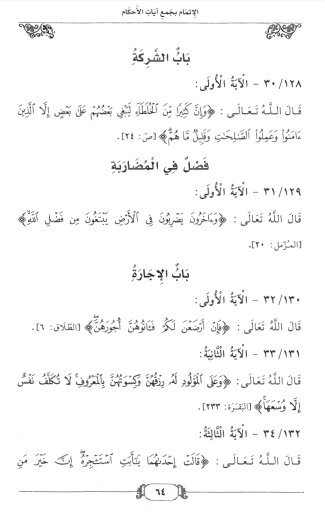 الإتمام بجمع آيات الأحكام
بَابُ الشَّرِكَةِ
٣٠/١٢٨ - الآيَةُ الْأُولَى:
قَالَ اللَّهُ تَعَالَى: ﴿وَإِنَّ كَثِيرًا مِّنَ الْخُلَطَآءِ لَيَبْغِي بَعْضُهُمْ عَلَى بَعْضٍ إِلَّا الَّذِينَ
ءَامَنُوا وَعَمِلُوا الصَّٰلِحَٰتِ وَقَلِيلٌ مَّا هُمْ﴾ [ص: ٢٤].
فَصْلٌ فِي الْمُضَارَبَةِ
٣١/١٢٩ - الآيَةُ الْأُولَى:
قَالَ اللَّهُ تَعَالَى: ﴿وَءَاخَرُونَ يَضْرِبُونَ فِي الْأَرْضِ يَبْتَغُونَ مِن فَضْلِ اللَّهِ﴾
[المزمل: ٢٠].
بَابُ الْإِجَارَةِ
٣٢/١٣٠ - الآيَةُ الْأُولَى:
قَالَ اللَّهُ تَعَالَى: ﴿فَإِنْ أَرْضَعْنَ لَكُمْ فَـَٔاتُوهُنَّ أُجُورَهُنَّ﴾ [الطلاق: ٦].
٣٣/١٣١ - الآيَةُ الثَّانِيَةُ:
قَالَ اللَّهُ تَعَالَى: ﴿وَعَلَى الْمَوْلُودِ لَهُ رِزْقُهُنَّ وَكِسْوَتُهُنَّ بِالْمَعْرُوفِ لَا تُكَلَّفُ نَفْسٌ
إِلَّا وُسْعَهَا﴾ [البقرة: ٢٣٣].
٣٤/١٣٢ - الآيَةُ الثَّالِثَةُ:
قَالَ اللَّهُ تَعَالَى: ﴿قَالَتْ إِحْدَىٰهُمَا يَٰٓأَبَتِ اسْتَـْٔجِرْهُ إِنَّ خَيْرَ مَنِ
٦٤